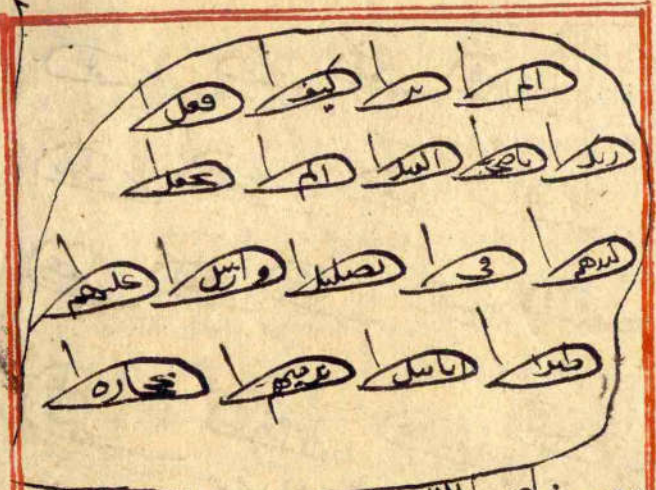 الم تر كيف فعل
ربك باصحاب الفيل الم يجعل
كيدهم في تضليل و ارسل عليهم
طيرا ابابيل ترميهم بحجاره